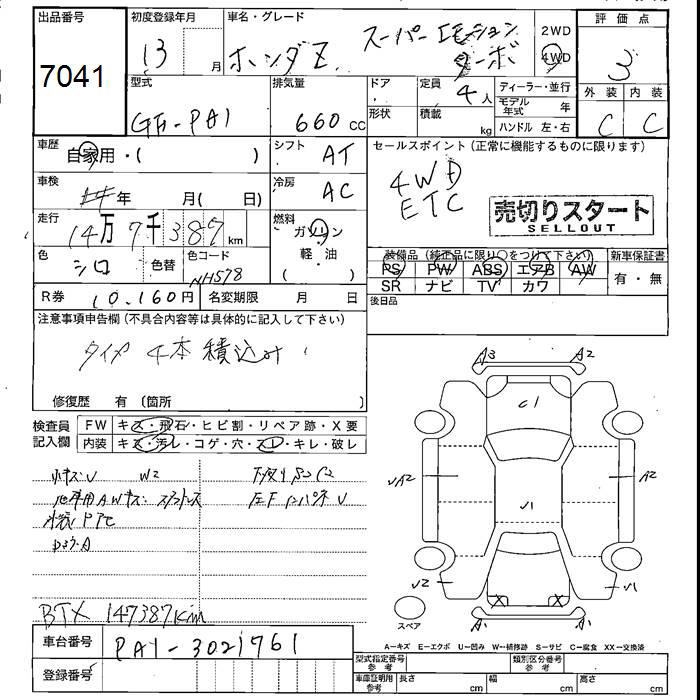 出品番号 初度登録年月 車名・グレード 評価点
7041 13 月 ホンダZ スーパーエモーション ターボ 2WD 4WD 3
型式 排気量 ドア 定員 ディーラー・並行 外装 内装
GH-PA1 660 cc 形状 4人 積載 kg モデル年式 年 ハンドル 左・右 C C
車歴 自家用・( ) シフト AT セールスポイント(正常に機能するものに限ります)
車検 年 月( 日) 冷房 AC 4WD
ETC 売切りスタート
SELLOUT
走行 14万7千387km 燃料 ガソリン
軽・油
( )
色 シロ 色替 色コード NH578
装備品(純正品に限り○をつけて下さい) 新車保証書
PS PW ABS エアB AW 有・無
SR ナビ TV カワ
R券 10,160円 名変期限 月 日 後日品
注意事項申告欄(不具合内容等は具体的に記入して下さい)
タイヤ 4本積込み
修復歴 有(箇所 )
検査員 記入欄 FW キズ・飛石・ヒビ割・リペア跡・X要
内装 キズ・汚レ・コゲ・穴・スレ・キレ・破レ
小キズU W2 下廻りサビC2
他車用AWキズ: スタッドレス 左FインパネU
外装ドアモ
A3 A2
C1
UA2 A2
U1
U2 U1
X X
A1 A1
スペア
BTX 147387km
車台番号 PA1-3021761
登録番号
A−キズ E−エクボ U−凹み W−補修跡 S−サビ C−腐食 XX−交換済
型式指定番号 参考 類別区分番号 参考
車庫証明用 参考 長さ cm 幅 cm 高さ cm